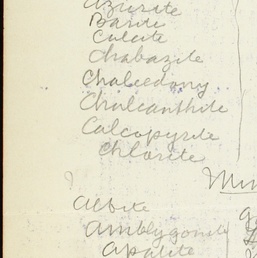 Azurite
Barite
Calcite
Chabazite
Chalcedony
Chalcanthite
Calcopyrite
Chlorite
Min
Albite
Amblygonite
Apatite